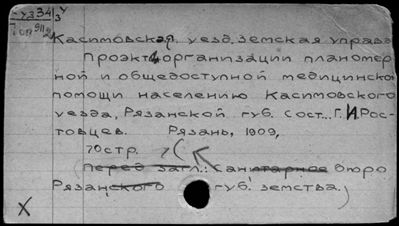 У334/3
Топ 911/2
Касимовская уезд. земская управа
Проэкт организации планомер
ной и общедоступной медицинской
помощи населению Касимовского
уезда, Рязанской губ. Сост... Г. И. Рос-
товцев. Рязань, 1909,
70стр.
(Перед загл.: Санитарное бюро
Рязанского губ. земства.)
X